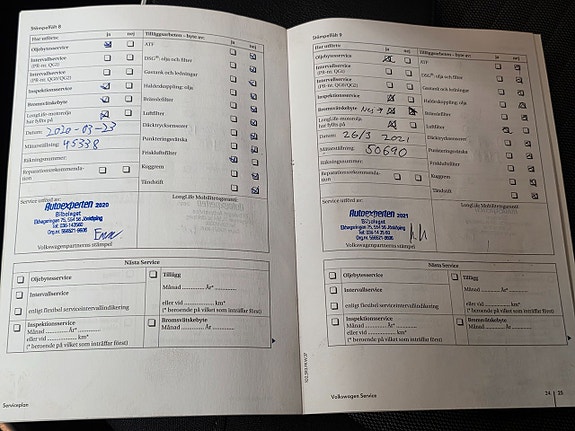 Stämpelfält 8
Har utförts: ja nej
Oljebytesservice
Intervallservice
(PR-nr. QG1)
Intervallservice
(PR-nr. QG0/QG2)
Inspektionsservice
Bromsvätskebyte
LongLife-motorolja
har fyllts på
Datum: 2020-03-23
Mätarställning: 45338
Räkningsnummer:
Reparationsrekommenda-
tion
Tilläggsarbeten – byte av: ja nej
ATF
DSG®, olja och filter
Gastank och ledningar
Haldexkoppling: olja
Bränslefilter
Luftfilter
Däcktrycksensorer
Punkteringsvätska
Friskluftsfilter
Kuggrem
Tändstift
Service utförd av:
LongLife Mobilitetsgaranti:
Autoexperten 2020
Bilbolaget
Ekhagsringen 75, 554 56 Jönköping
Volkswagenpartnerns stämpel
Nästa Service
Oljebytesservice
Intervallservice
enligt flexibel serviceintervallindikering
Inspektionsservice
Månad ............ År* ............
eller vid .................... km*
(* beroende på vilket som inträffar först)
Tillägg
Månad ............ År* ............
eller vid .................... km*
(* beroende på vilket som inträffar först)
Bromsvätskebyte
Månad ............ År ............
Serviceplan
Stämpelfält 9
Har utförts: ja nej
Oljebytesservice
Intervallservice
(PR-nr. QG1)
Intervallservice
(PR-nr. QG0/QG2)
Inspektionsservice
Bromsvätskebyte Nej →
LongLife-motorolja
har fyllts på
Datum: 26/3 2021
Mätarställning: 50690
Räkningsnummer:
Reparationsrekommenda-
tion
Tilläggsarbeten – byte av: ja nej
ATF
DSG®, olja och filter
Gastank och ledningar
Haldexkoppling: olja
Bränslefilter
Luftfilter
Däcktrycksensorer
Punkteringsvätska
Friskluftsfilter
Kuggrem
Tändstift
Service utförd av:
LongLife Mobilitetsgaranti:
Autoexperten 2021
Bilbolaget
Ekhagsringen 75, 554 56 Jönköping
Volkswagenpartnerns stämpel
Nästa Service
Oljebytesservice
Intervallservice
enligt flexibel serviceintervallindikering
Inspektionsservice
Månad ............ År* ............
eller vid .................... km*
(* beroende på vilket som inträffar först)
Tillägg
Månad ............ År* ............
eller vid .................... km*
(* beroende på vilket som inträffar först)
Bromsvätskebyte
Månad ............ År ............
Volkswagen Service
24 25